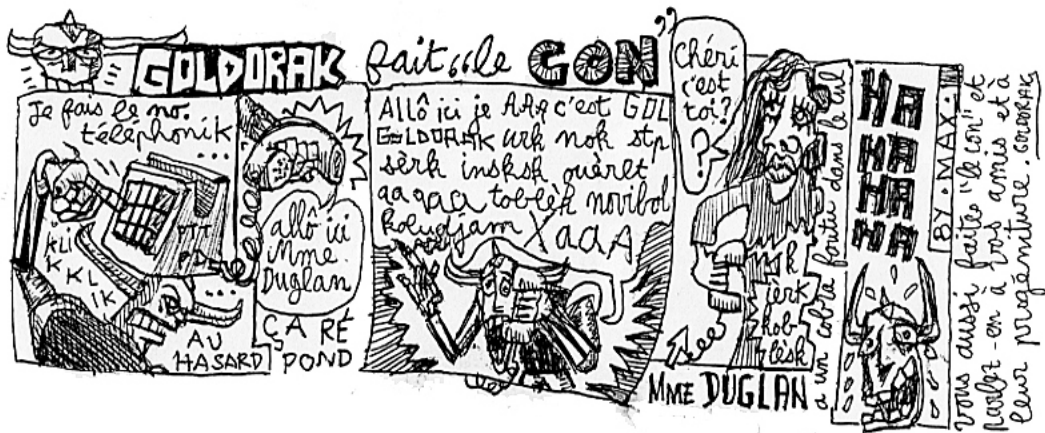 GOLDORAK fait "le CON"
Je fais le no.
téléphonik
...
KLI
K
KKL
IK
PTT
...
AU
HASARD
allô ici
Mme
Duglan
ÇA RÉ
POND
Allô ici je AAA c'est GOL
GOLDORAK urk nok stp
sèrk insksk ouèret
aaaaa toblèk novibol
koludjam
XaaA
Chéri
c'est
toi?
?
ièrk
kob
lèsk
MME DUGLAN
a un cobra foutu dans le cul
HA
HA
HA
HA
BY·MAX·
Vous aussi faites "le con" et
parlez-en à vos amis et à
leur progéniture. GOLDORAK